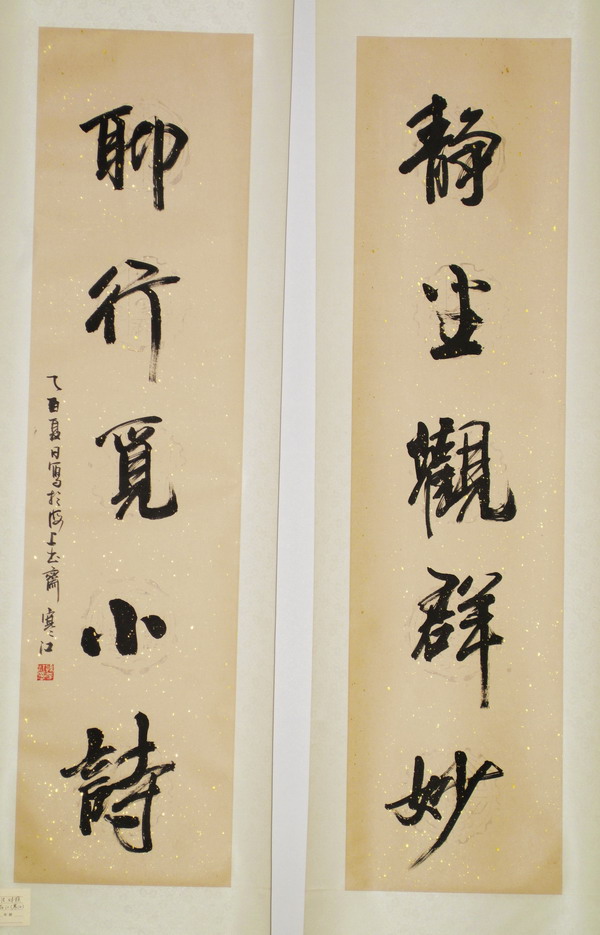 静坐觀群妙
聊行覓小詩
乙酉夏日寫於海上玉齋 寒江